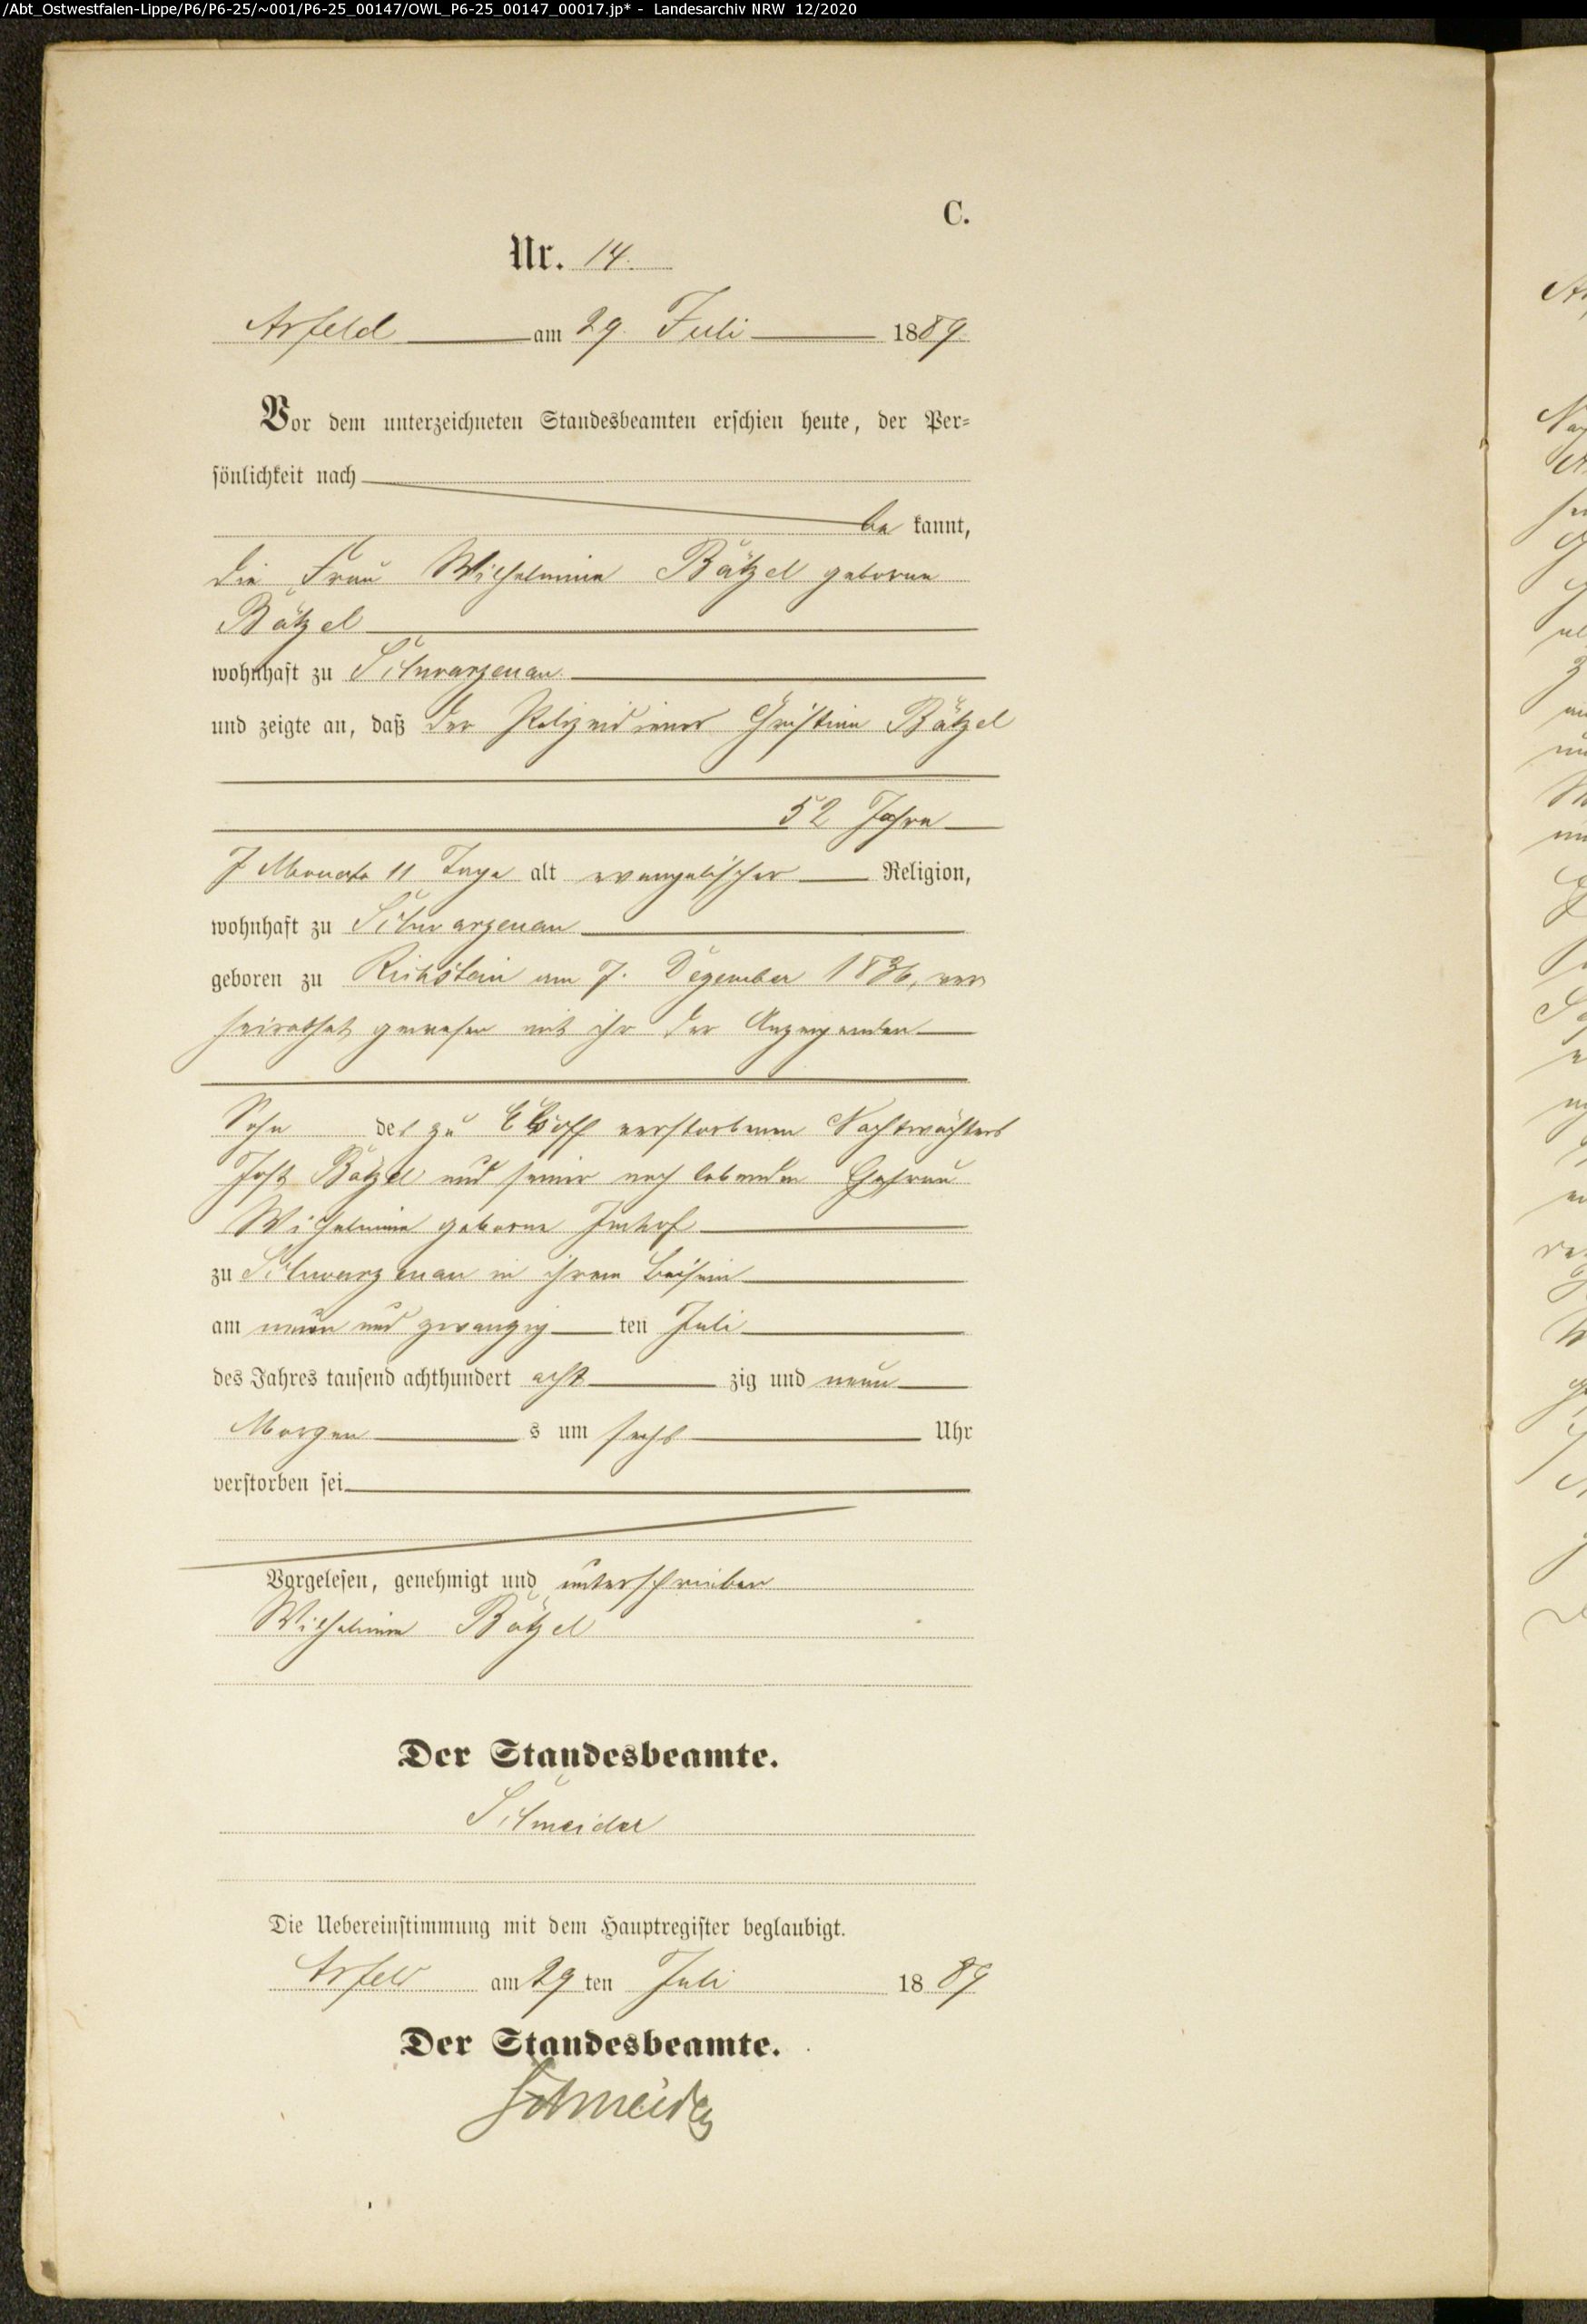 /Abt_Ostwestfalen-Lippe/P6/P6-25/~001/P6-25_00147/OWL_P6-25_00147_00017.jp* - Landesarchiv NRW 12/2020
C.
Nr. 14.
Arfeld am 29. Juli 1889.
Vor dem unterzeichneten Standesbeamten erschien heute, der Per-
sönlichkeit nach
be kannt,
die Frau Wilhelmine Bätzel geborne
Bätzel
wohnhaft zu Schwarzenau
und zeigte an, daß der Polizeidiener Christian Bätzel
52 Jahre
7 Monate 11 Tage alt evangelischer Religion,
wohnhaft zu Schwarzenau
geboren zu Richstein am 7. Dezember 1836, ver
heirathet gewesen mit ihr der Anzeigenden
Sohn des zu Elsoff verstorbenen Nachtwächters
Jost Bätzel und seiner noch lebenden Ehefrau
Wilhelmine geborne Imhof
zu Schwarzenau in ihrem Beisein
am neun und zwanzig ten Juli
des Jahres tausend achthundert acht zig und neun
Morgen s um sechs Uhr
verstorben sei
Vorgelesen, genehmigt und unterschrieben
Wilhelmine Bätzel
Der Standesbeamte.
Schneider
Die Uebereinstimmung mit dem Hauptregister beglaubigt.
Arfeld am 29 ten Juli 18 89
Der Standesbeamte.
Schneider